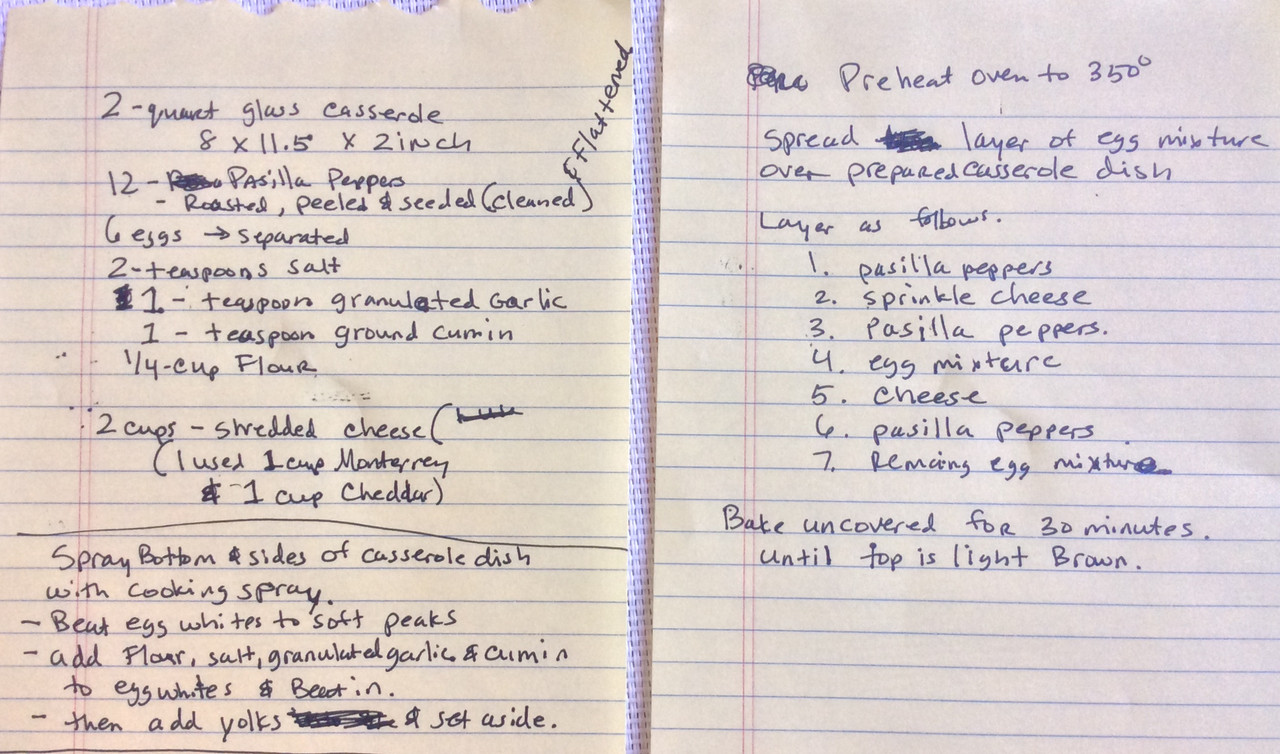 2-quart glass casserole
8 x 11.5 x 2 inch
12 - Pasilla Peppers
- Roasted, peeled & seeded (cleaned) & Flattened
6 eggs → separated
2-teaspoons salt
1 - teaspoon granulated Garlic
1 - teaspoon ground cumin
1/4-cup Flour
2 cups - shredded cheese (
(I used 1 cup Monterrey
& 1 cup Cheddar)
Spray Bottom & sides of casserole dish
with cooking spray.
- Beat egg whites to soft peaks
- add Flour, salt, granulated garlic & cumin
to egg whites & Beat in.
- then add yolks & set aside.
Preheat oven to 350°
Spread layer of egg mixture
over prepared casserole dish
Layer as follows.
1. pasilla peppers
2. sprinkle cheese
3. Pasilla peppers.
4. egg mixture
5. cheese
6. pasilla peppers
7. Remaing egg mixture
Bake uncovered for 30 minutes.
until top is light Brown.